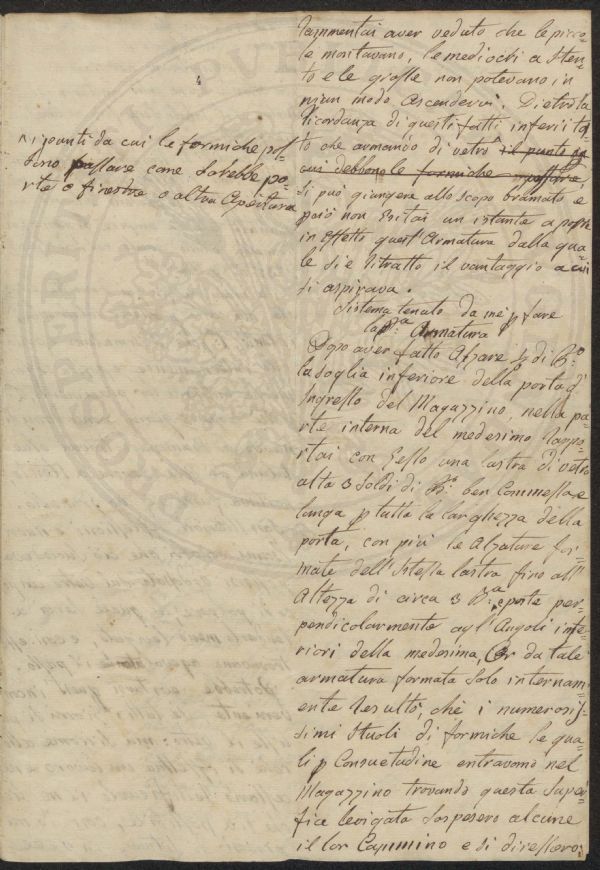 4
rammentai aver veduto che le picco=
le montavano, le mediocri a sten=
to e le grosse non potevano, in
niun modo Ascendervi. Dietro la
ricordanza di questi fatti inferii to
to che armando di vetro ^ il punto da
cui debbono le formiche passare,
si può giungere allo scopo bramato e
perciò non esitai un istante a porre
in effetto quest'Armatura dalla qua=
le si è ritratto il vantaggio a cui
si aspirava.
^ i punti da cui le formiche pos=
sono passare come sarebbe po=
rte o finestre o altra Apertura
Sistema tenuto da me p fare
la pª Armatura
Dopo aver fatto Alzare di Bº
la soglia inferiore della porta d'
Ingresso del Magazzino, nella pa=
rte interna del medesimo rappo=
rtai con Gesso una lastra di vetro
alta 3 soldi di Bº ben Commessa e
lunga p tutta la larghezza della
porta, con più le Alzature for=
mate dell'istessa lastra fino all'
Altezza di circa 3 Bª e poste per=
pendicolarmente agl'Angoli inte=
riori della medesima, Or da tale
armatura formata solo internam=
ente resultò, che i numerosis=
simi stuoli di formiche le qua=
li p Consuetudine entravano nel
Magazzino trovando questa super=
fice levigata sospesero alcune
il lor Cammino e si diressero